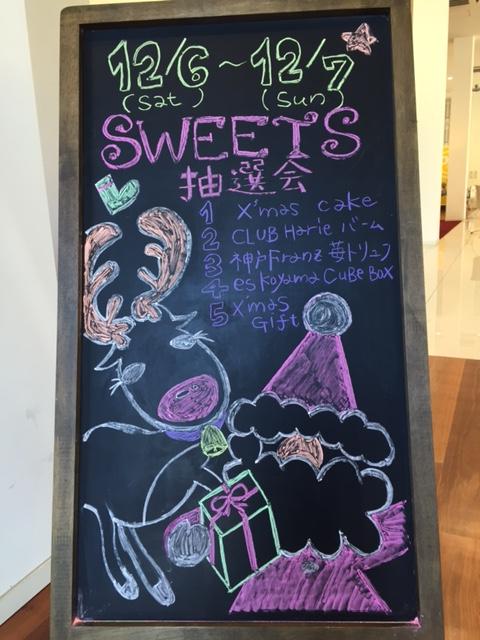 12/6～12/7
(Sat) (Sun)
SWEETS
抽選会
1 X'mas cake
2 CLUB Harie バーム
3 神戸Franz 苺トリュフ
4 es Koyama CuBe BOX
5 X'mas
Gift